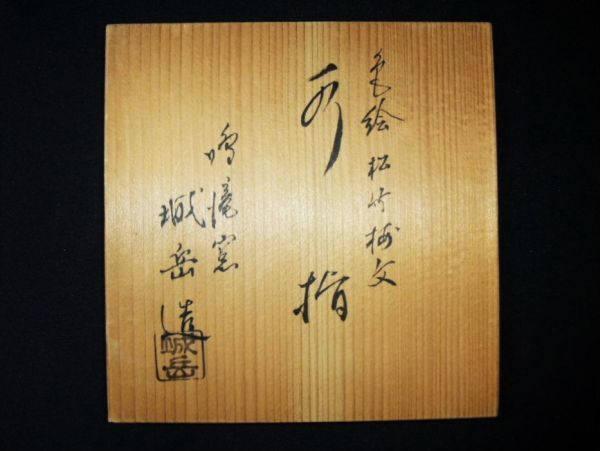 色絵 松竹梅文
水指
鳴滝窯
城岳造
城岳